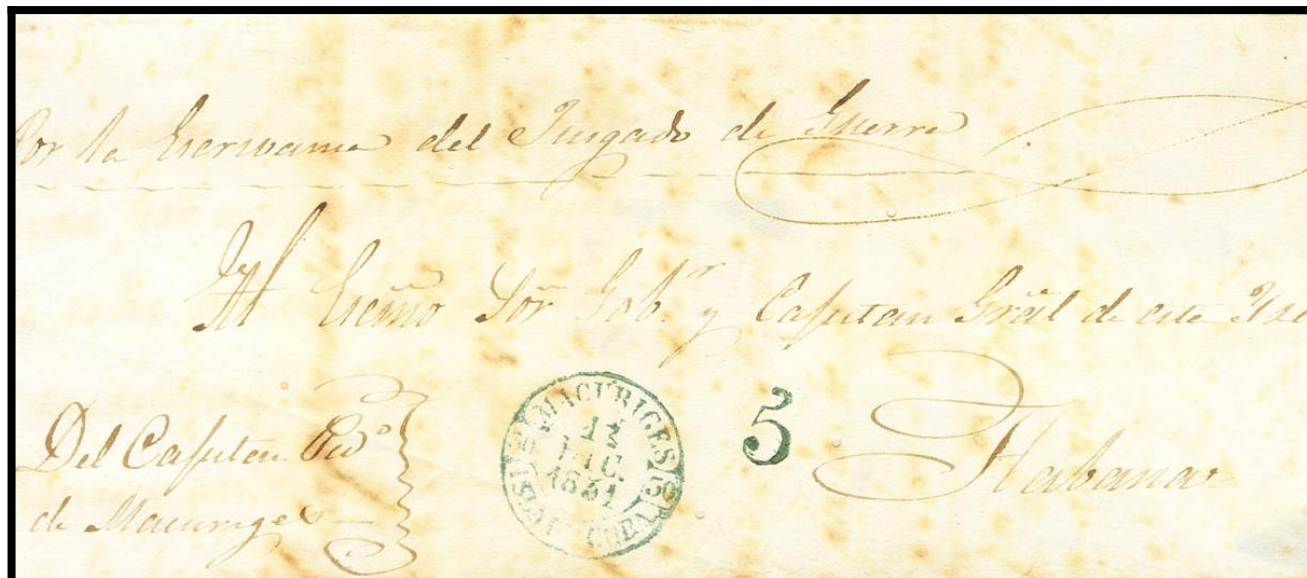 Por la Escrivania del Juzgado de Guerra
Al Escmo Sõr Gobr. y Capitan Grãl de esta Isla
Del Capitan Pedo
de Macuriges
MACURIGES
12
DIC
1851
ISLA D CUBA
5
Habana